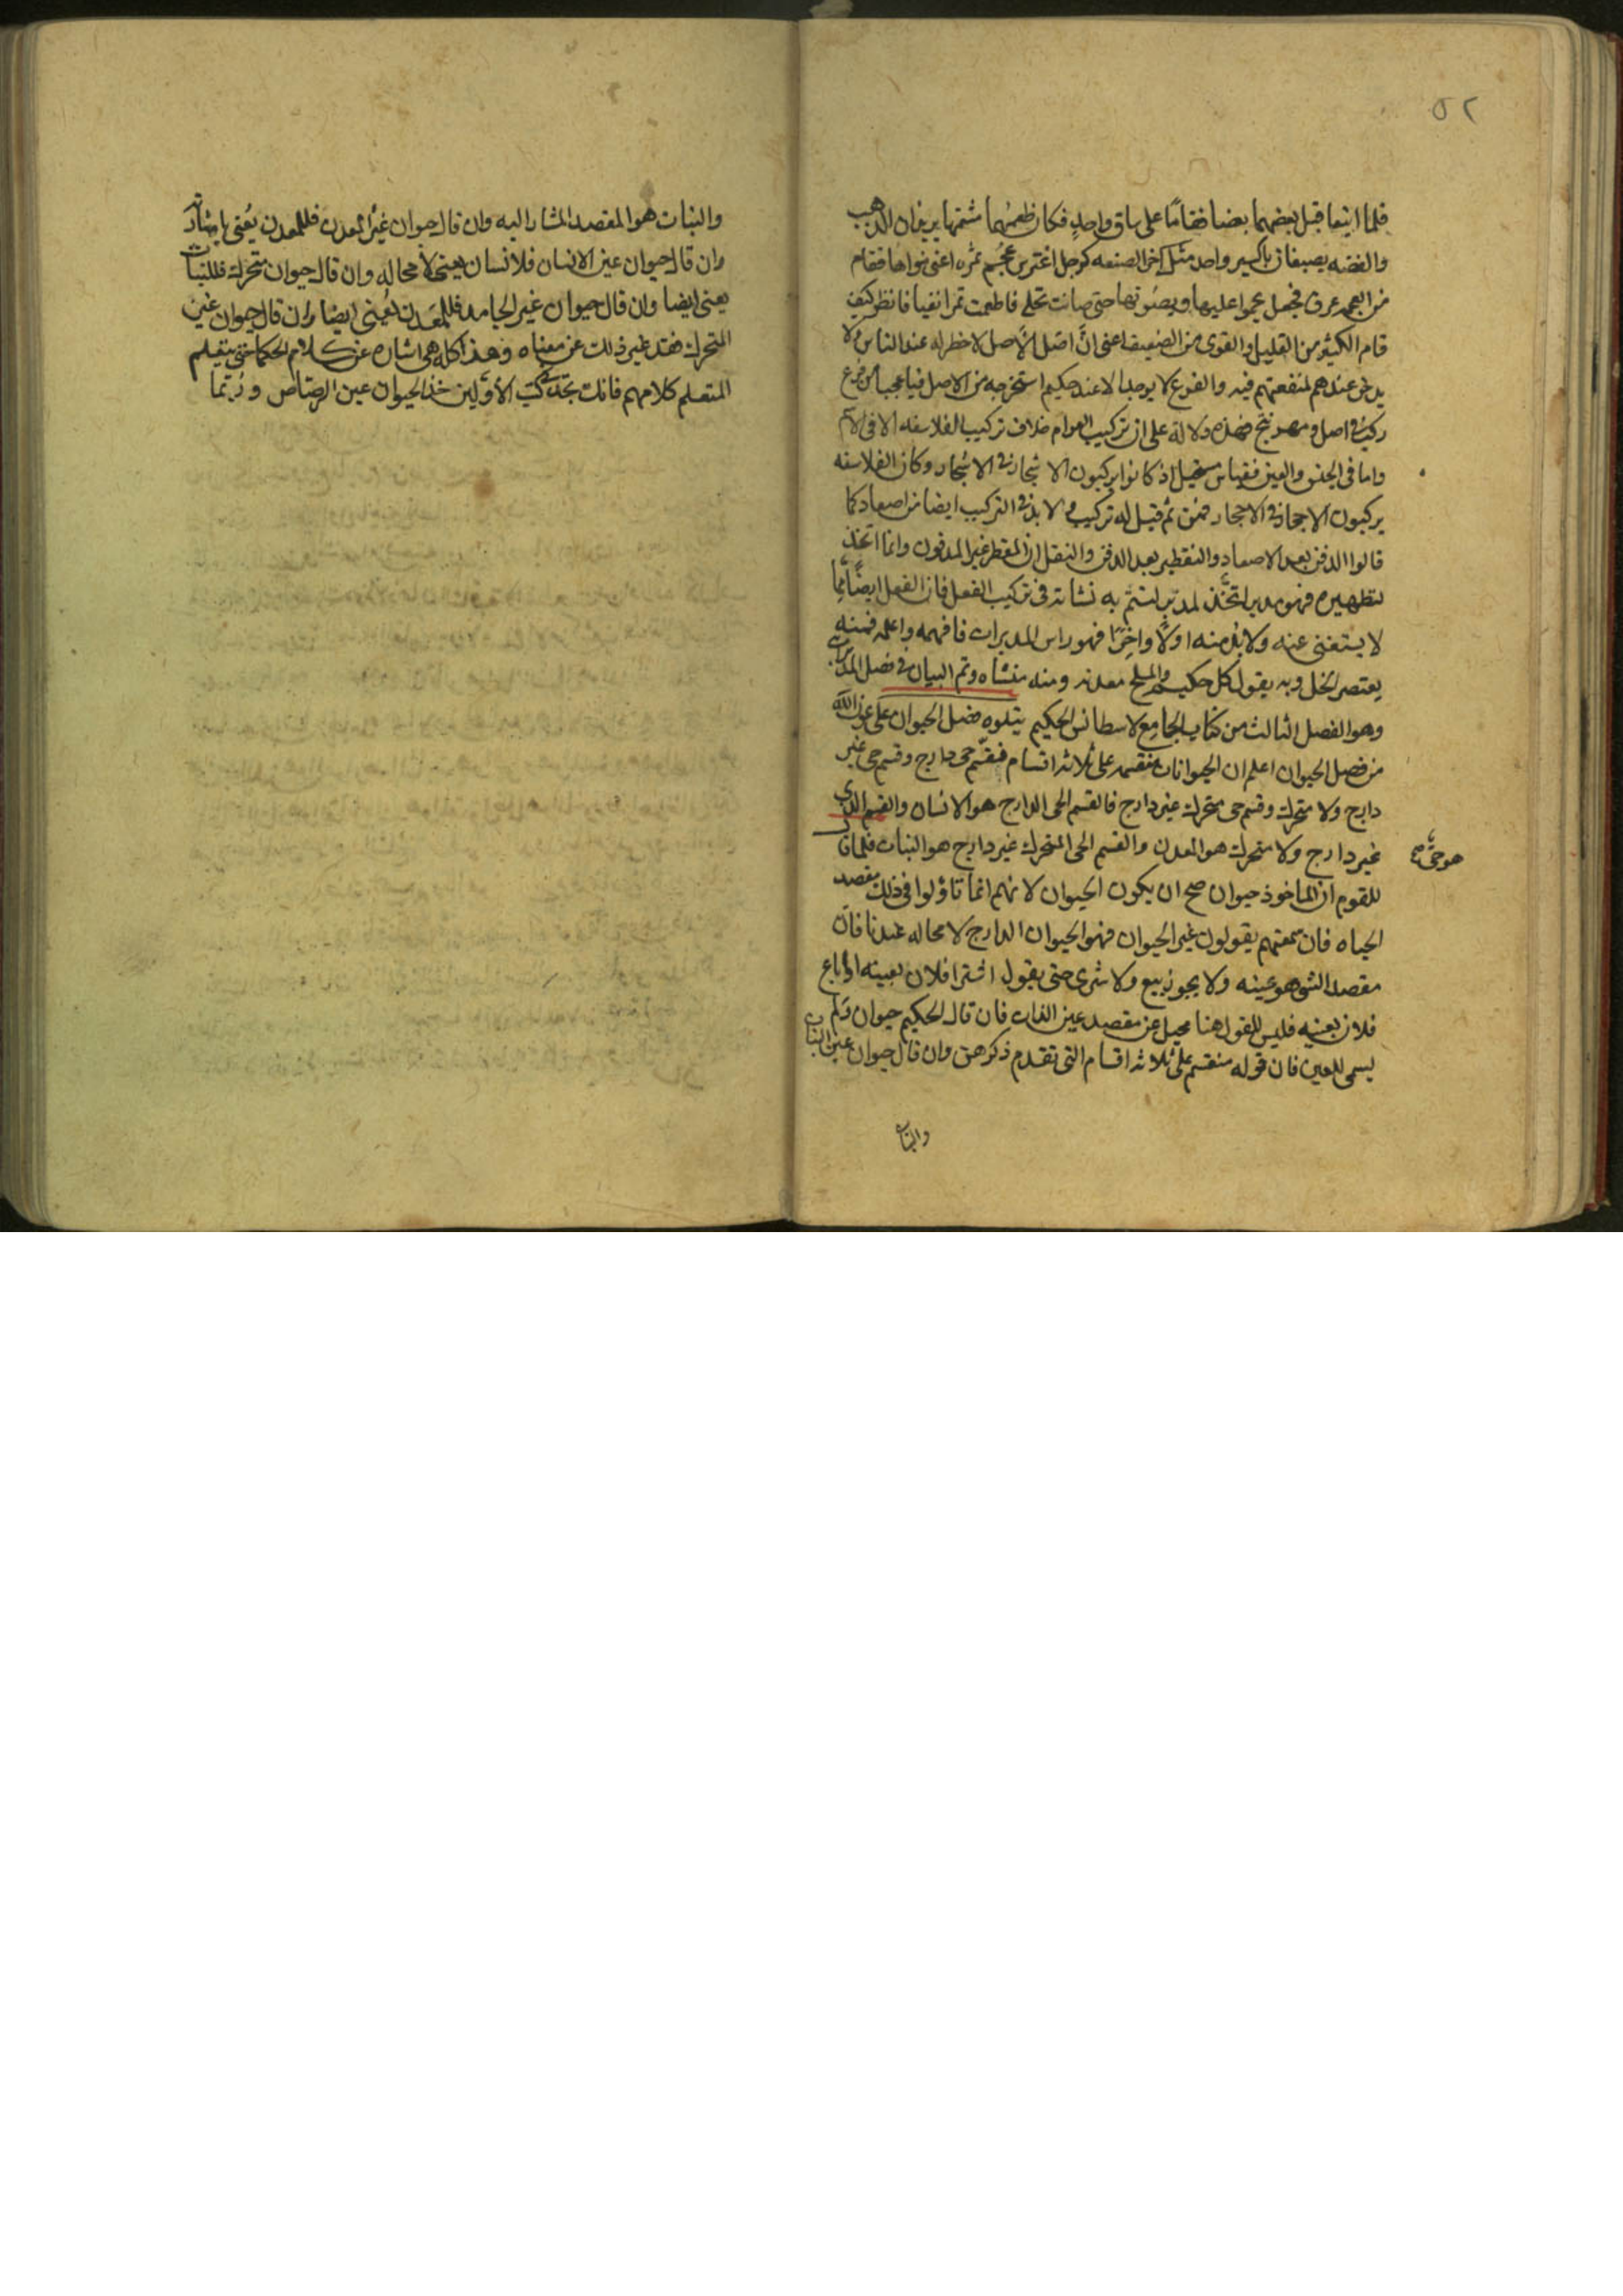 ٥٢
فلما اينعا قبل بعضهما بعضا فقاما على ساق واحد فكان طعمهما شمتها يريفان الذهب
والفضه يصبغان باكسير واحد مثل اخر الصنعه كرجل اغترس عجم تمره اعنى نواها فقام
من العجمه عرق فجعل عليها ويصونها حتى صانت نخله فاطعمت تمرا نقيا فانظر كيف
قام الكثير من القليل والقوى من الضعيف اعنى ان اصل الاصل لا خطر له عند الناس ولا
يدخر عندهم لمنفعتهم فيه والفرع لا يوجد الا عند حكيم استخرجه من الاصل فيا عجبا من فرع
ركب فى اصل و نتج فهذه دلالة على ان تركيب العوام خلاف تركيب الفلاسفه الا فى الاسم
واما فى الجنس والعين فقياس مستحيل اذ كانوا يركبون الاشجار فى الاشجار وكان الفلاسفه
يركبون الاحجار فى الاحجار فمن ثم قيل له تركيب ولا بد فى التركيب ايضا من اصعاد كما
قالوا الدفن بعد الاصعاد والتقطير بعد الدفن والنقل ان المقطر غير المدفون وانما اتخذ
لتطهيره فهو مدبر اتخذ لمدبر لتتم به نشاته فى تركيب الفعل فان الفعل ايضا مما
لا يستغنى عنه ولا بد منه اولا واخرا فهو راس المدبرات فافهمه واعلمه فمنه
يعتصر الخل وبه يقول كل حكيم والملح معدنه ومنه منشاه وتم البيان فى فصل المدبرات
وهو الفصل الثالث من كتاب الجامع لاسطانس الحكيم يتلوه فصل الحيوان على عون الله
من فصل الحيوان اعلم ان الحيوانات منقسمه على ثلاثه اقسام فقسم حى دارج وقسم حى غير
دارج ولا متحرك وقسم حى متحرك غير دارج فالقسم الحى الدارج هو الانسان والقسم الذى
هو حى صح
غير دارج ولا متحرك هو المعدن والقسم الحى المتحرك غير دارج هو النبات فلما قال
للقوم ان الماخوذ حيوان صح ان يكون الحيوان لانهم انما تاولوا فى ذلك مقصد
الحياه فان سمعتهم يقولون غير الحيوان فهو الحيوان الدارج لا محاله عندنا فان
مقصد الشى هو عينه ولا يجوز بيع ولا شرى حتى يقول اشترا فلان بعينه او باع
فلان بعينه فليس للقول هنا محيل عن مقصد عين الذات فان قال الحكيم حيوان ولم
يسمى للعين فان قوله منقسم على ثلاثه اقسام التى تقدم ذكرهن وان قال حيوان عين النبات
والنبات
والنبات هو المقصد المشار اليه وان قال حيوان غير المعدن فللمعدن يعنى باشارته
وان قال حيوان عين الانسان فلانسان يعنى لا محاله وان قال حيوان متحرك فللنبات
يعنى ايضا وان قال حيوان غير الجامد فللمعدن يعنى ايضا وان قال حيوان غير
المتحرك فقد غير ذلك عن معناه وهذا كله هى اشاره عن كلام الحكما حتى يتعلم
المتعلم كلامهم فانك تجد فى كتب الاولين خذ الحيوان عين الرصاص وربما